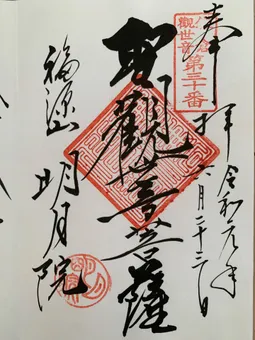 奉拝
令和元年
六月二十三日
観世音
第三十番
聖観世音菩薩
福源山
明月院